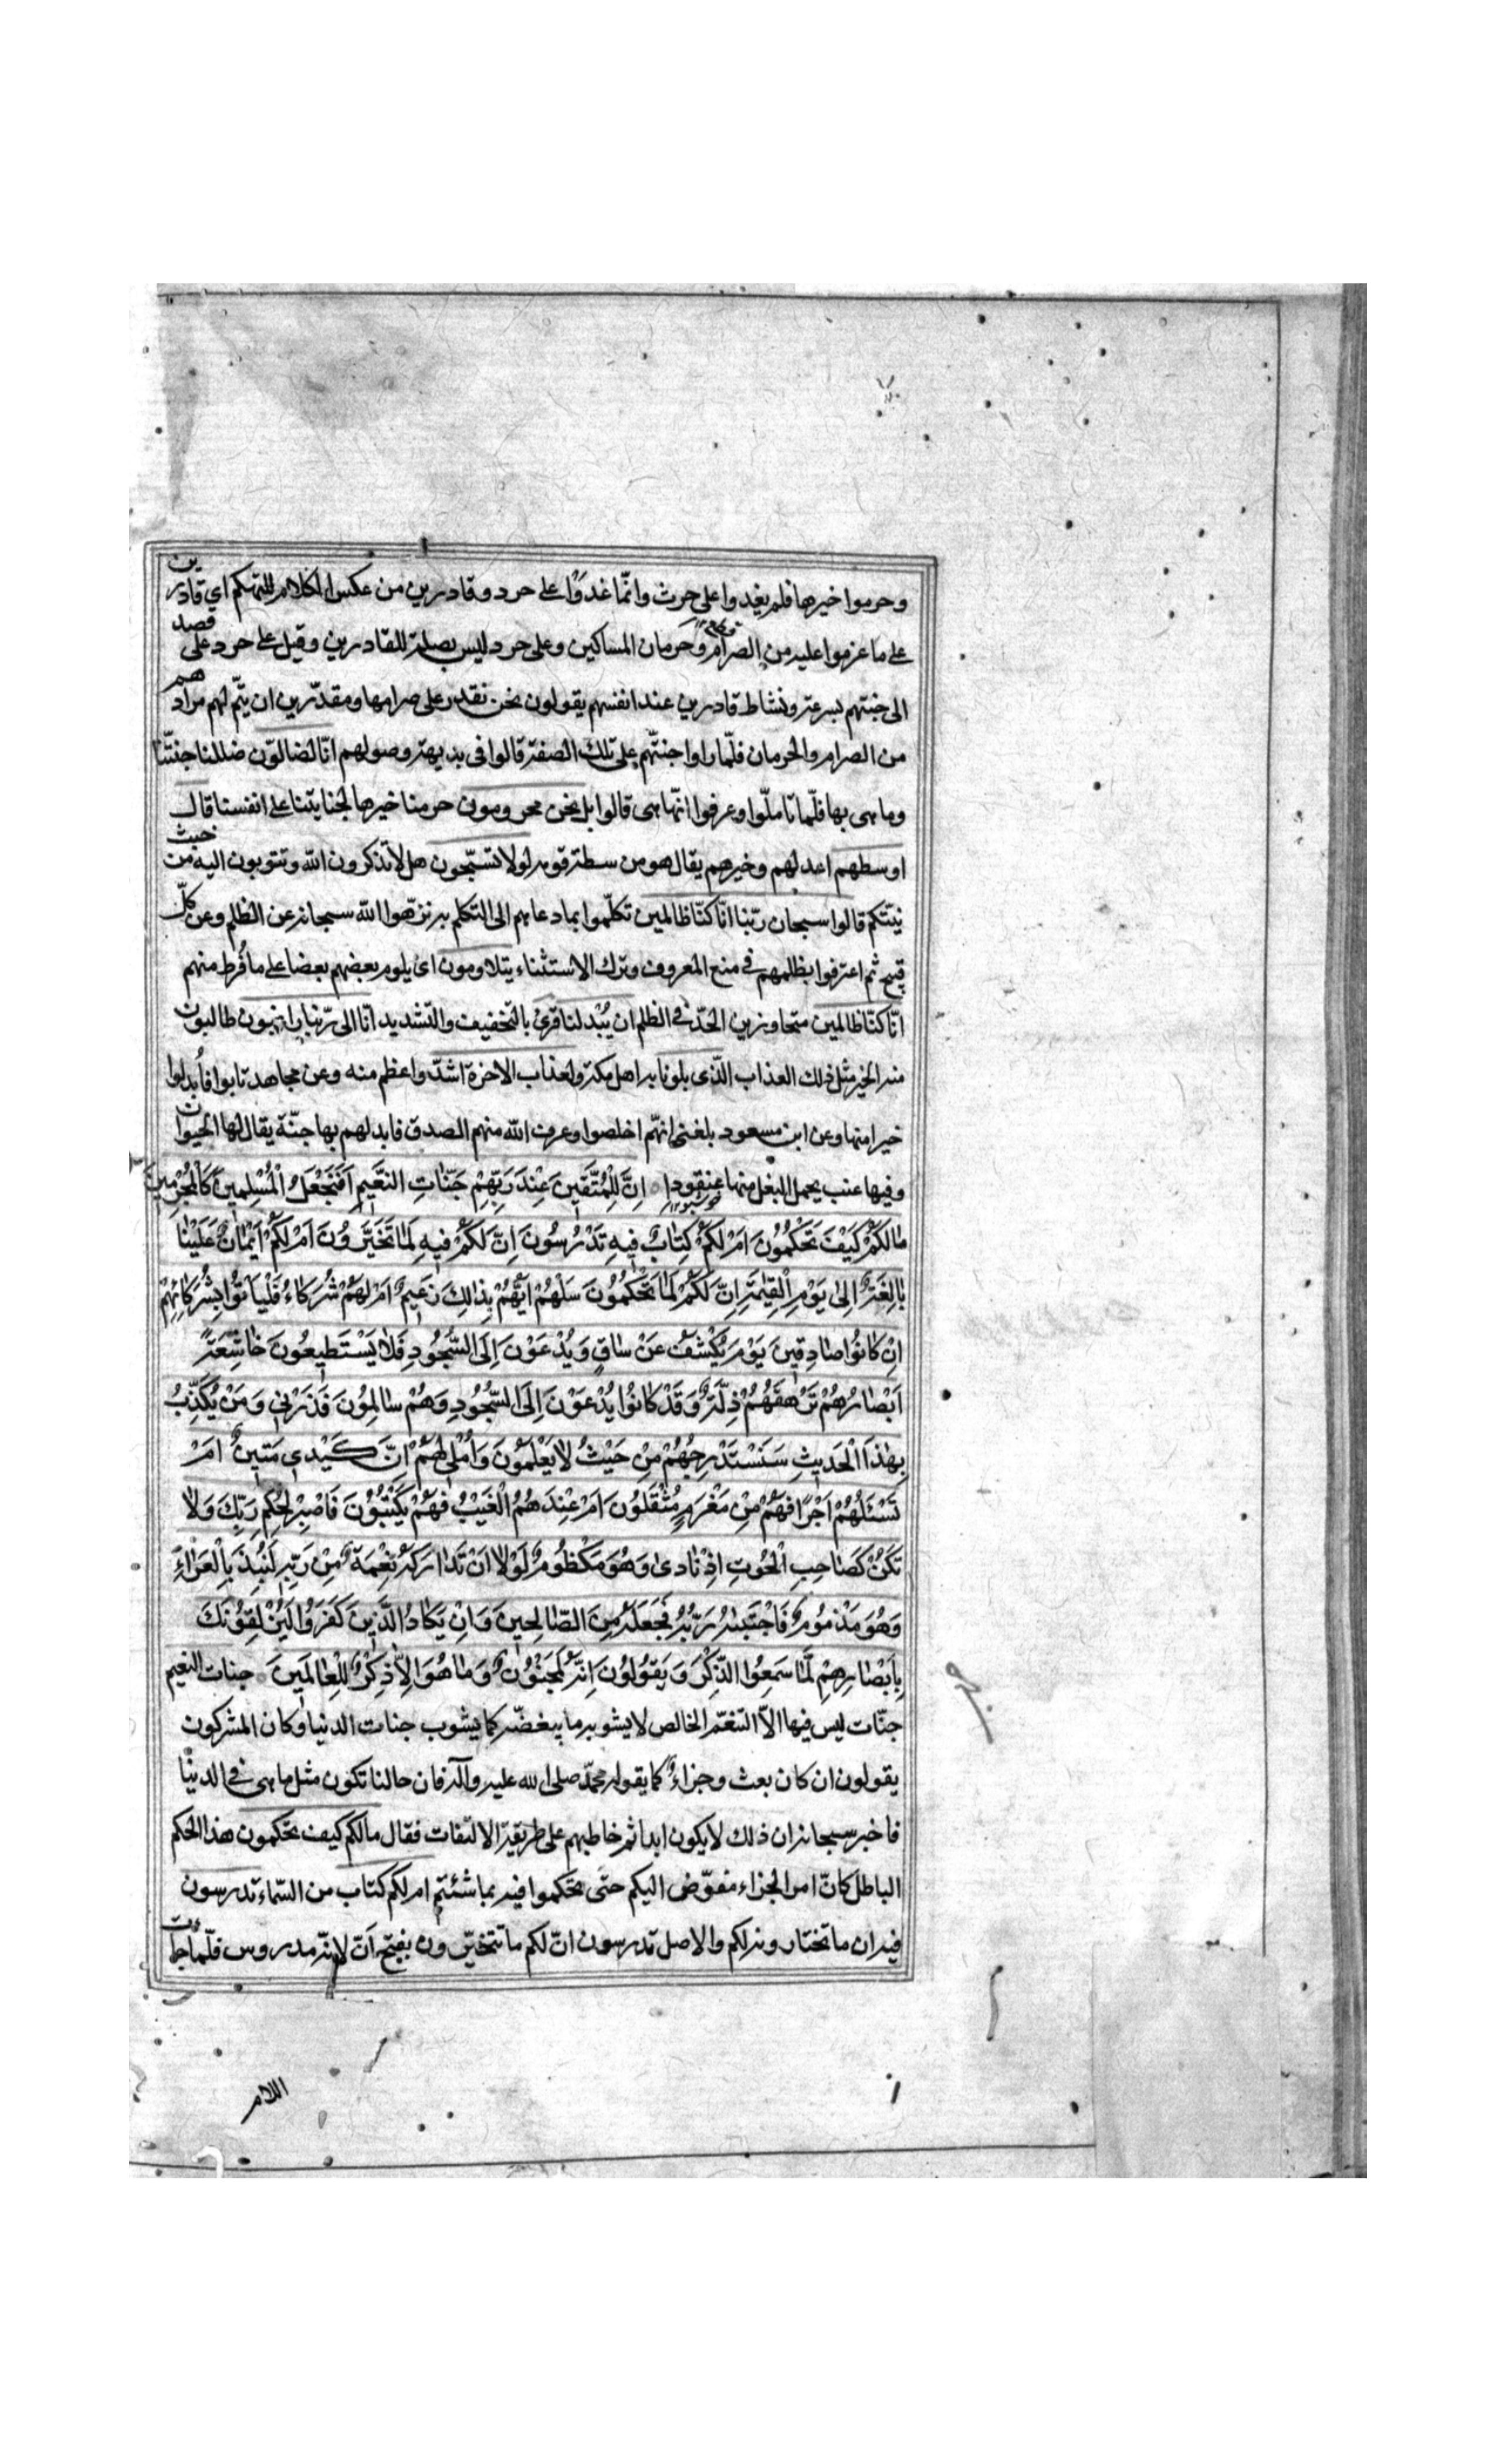 وحرموا خيرها فلم يغدوا على حرث وانّما غدوا على حرد وقادرين من عكس الكلام للتهكم اي قادرين
على ما عزموا عليه من الصرام وحرمان المساكين وعلى حرد ليس بصلة للقادرين وقيل على حرد على قصد
الى جنتهم بسرعة ونشاط قادرين عند انفسهم يقولون نحن نقدر على صرامها ومقدّرين ان يتّم لهم مرادهم
من الصرام والحرمان فلمّا راوا جنتّهم على تلك الصفة قالوا فى بديهة وصولهم انّا لضالوّن ضللنا جنتّنا
وما هى بها فلمّا تاملّوا وعرفوا انّها هى قالوا بل نحن محرومون حرمنا خيرها لجنايتنا على انفسنا قال
اوسطهم اعدلهم وخيرهم يقال هو من سطة قومه لولا تسبّحون هل لا تذكرون الله وتتوبون اليه من خبث
نيّتكم قالوا سبحان ربّنا انّا كنّا ظالمين تكلّموا بما دعاهم الى التكلم به نزّهوا الله سبحانه عن الظلم وعن كلّ
قبيح ثم اعترفوا بظلمهم فى منع المعروف وترك الاستثناء يتلاومون اى يلوم بعضهم بعضا على ما فرط منهم
انّا كنّا ظالمين متجاوزين الحدّ فى الظلم ان يُبْدلنا قرئ بالتخفيف والتشديد انّا الى ربّنا راغبون طالبون
منه الخير مثل ذلك العذاب الّذى بلونا به اهل مكة ولعذاب الاخرة اشدّ واعظم منه وعن مجاهد تابوا فأبدلوا
خيرا منها وعن ابن مسعود بلغنى انّهم اخلصوا وعرف الله منهم الصدق فابدلهم بها جنّة يقال لها الحيوان
وفيها عنب يحمل البغل منها عنقودا اِنَّ لِلْمُتَّقينَ عِنْدَ رَبِّهِمْ جَنّاتِ النَّعيمِ اَفَنَجْعَلُ الْمُسْلِمينَ كَالْمُجْرِمينَ
مٰالَكُمْ كَيْفَ تَحْكُمُونَ اَمْ لَكُمْ كِتٰابٌ فيهِ تَدْرُسُونَ اِنَّ لَكُمْ فيهِ لَمٰا تَخَيَّرُونَ اَمْ لَكُمْ اَيْمٰانٌ عَلَيْنٰا
بٰالِغَةٌ اِلىٰ يَوْمِ الْقِيٰمَةِ اِنَّ لَكُمْ لَمٰا تَحْكُمُونَ سَلْهُمْ اَيُّهُمْ بِذٰلِكَ زَعيمٌ اَمْ لَهُمْ شُرَكٰاءُ فَلْيَأْتُوا بِشُرَكٰائِهِمْ
اِنْ كٰانُوا صٰادِقينَ يَوْمَ يُكْشَفُ عَنْ سٰاقٍ وَيُدْعَوْنَ اِلَى السُّجُودِ فَلٰا يَسْتَطيعُونَ خٰاشِعَةً
اَبْصٰارُهُمْ تَرْهَقُهُمْ ذِلَّةٌ وَقَدْ كٰانُوا يُدْعَوْنَ اِلَى السُّجُودِ وَهُمْ سٰالِمُونَ فَذَرْنى وَمَنْ يُكَذِّبُ
بِهٰذَا الْحَديثِ سَنَسْتَدْرِجُهُمْ مِنْ حَيْثُ لٰا يَعْلَمُونَ وَاُمْلى لَهُمْ اِنَّ كَيْدى مَتينٌ اَمْ
تَسْئَلُهُمْ اَجْرًا فَهُمْ مِنْ مَغْرَمٍ مُثْقَلُونَ اَمْ عِنْدَهُمُ الْغَيْبُ فَهُمْ يَكْتُبُونَ فَاصْبِرْ لِحُكْمِ رَبِّكَ وَلٰا
تَكُنْ كَصٰاحِبِ الْحُوتِ اِذْ نٰادىٰ وَهُوَ مَكْظُومٌ لَوْلٰا اَنْ تَدٰارَكَهُ نِعْمَةٌ مِنْ رَبِّهِ لَنُبِذَ بِالْعَرٰاءِ
وَهُوَ مَذْمُومٌ فَاجْتَبٰيهُ رَبُّهُ فَجَعَلَهُ مِنَ الصّٰالِحينَ وَاِنْ يَكٰادُ الَّذينَ كَفَرُوا لَيُزْلِقُونَكَ
بِاَبْصٰارِهِمْ لَمّٰا سَمِعُوا الذِّكْرَ وَيَقُولُونَ اِنَّهُ لَمَجْنُونٌ وَمٰا هُوَ اِلّٰا ذِكْرٌ لِلْعٰالَمينَ جنات النعيم
جنّات ليس فيها الاّ التنعّم الخالص لا يشوبه ما ينغضّه كما يشوب جنات الدنيا وكان المشركون
يقولون ان كان بعث وجزاء كما يقوله محمّد صلى الله عليه وآله فان حالنا تكون مثل ما هى فى الدينا
فاخبر سبحانه ان ذلك لا يكون ابدا ثم خاطبهم على طريقة الالتفات فقال مالكم كيف تحكمون هذا الحكم
الباطل كانّ امر الجزاء مفوّض اليكم حتى تحكموا فيه بما شئتم ام لكم كتاب من السّماء تدرسون
فيه ان ما تختارونه لكم والاصل تدرسون انّ لكم ما تتخيّرون بفتح اَنّ لانّه مدروس فلمّا جاءت
اللام